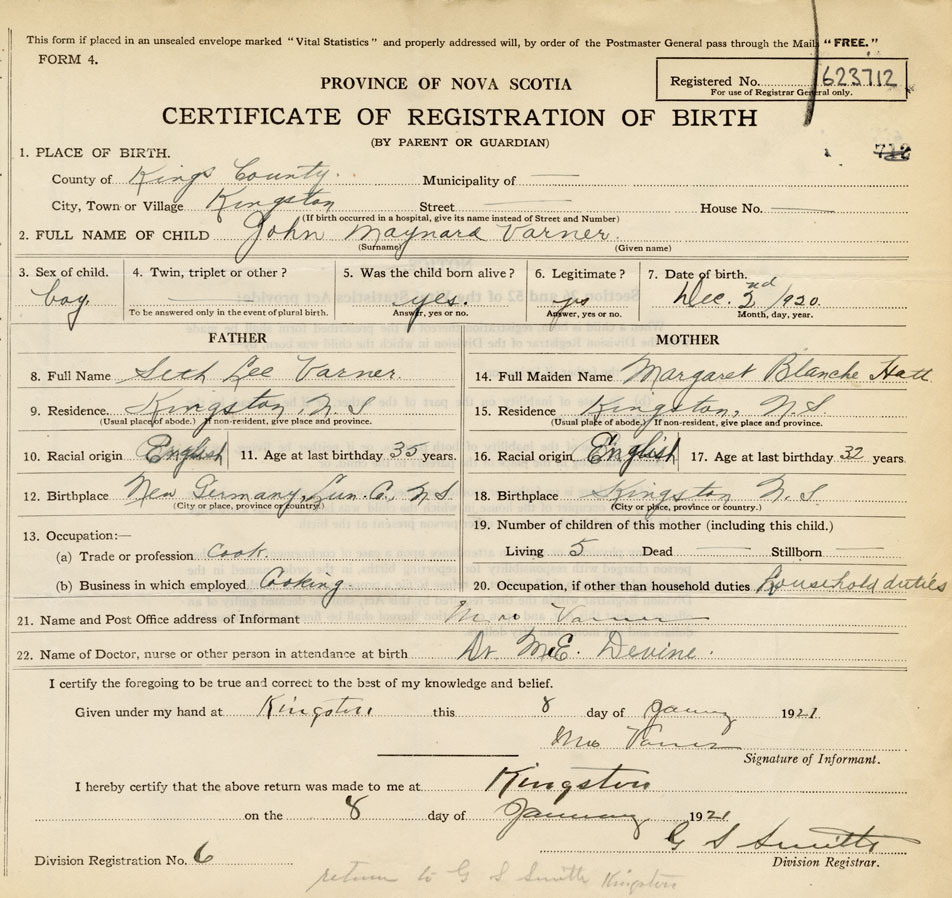 This form if placed in an unsealed envelope marked "Vital Statistics" and properly addressed will, by order of the Postmaster General pass through the Mails "FREE."
FORM 4.
Registered No. 623712
For use of Registrar General only.
PROVINCE OF NOVA SCOTIA
CERTIFICATE OF REGISTRATION OF BIRTH
(BY PARENT OR GUARDIAN)
1. PLACE OF BIRTH.
County of Kings County. Municipality of
City, Town or Village Kingston Street House No.
(If birth occurred in a hospital, give its name instead of Street and Number)
2. FULL NAME OF CHILD John Maynard Varner.
(Surname) (Given name)
3. Sex of child. 4. Twin, triplet or other? 5. Was the child born alive? 6. Legitimate? 7. Date of birth.
boy. yes. yes Dec. 2nd 1920.
To be answered only in the event of plural birth. Answer, yes or no. Answer, yes or no. Month, day, year.
FATHER MOTHER
8. Full Name Seth Lee Varner. 14. Full Maiden Name Margaret Blanche Hatt
9. Residence. Kingston, N.S 15. Residence Kingston, N.S
(Usual place of abode.) If non-resident, give place and province. (Usual place of abode.) If non-resident, give place and province.
10. Racial origin English 11. Age at last birthday 35 years. 16. Racial origin English 17. Age at last birthday 32 years.
12. Birthplace New Germany, Lun. Co. N S 18. Birthplace Kingston N. S
(City or place, province or country.) (City or place, province or country.)
13. Occupation:— 19. Number of children of this mother (including this child.)
(a) Trade or profession cook. Living 5 Dead Stillborn
(b) Business in which employed Cooking 20. Occupation, if other than household duties household duties
21. Name and Post Office address of Informant Mrs Varner
22. Name of Doctor, nurse or other person in attendance at birth Dr M.E. Devine.
I certify the foregoing to be true and correct to the best of my knowledge and belief.
Given under my hand at Kingston this 8 day of January 1921
Mrs Varner
Signature of Informant.
I hereby certify that the above return was made to me at Kingston
on the 8 day of January 1921
G S Smith
Division Registration No. 6 Division Registrar.
return to G S Smith Kingston